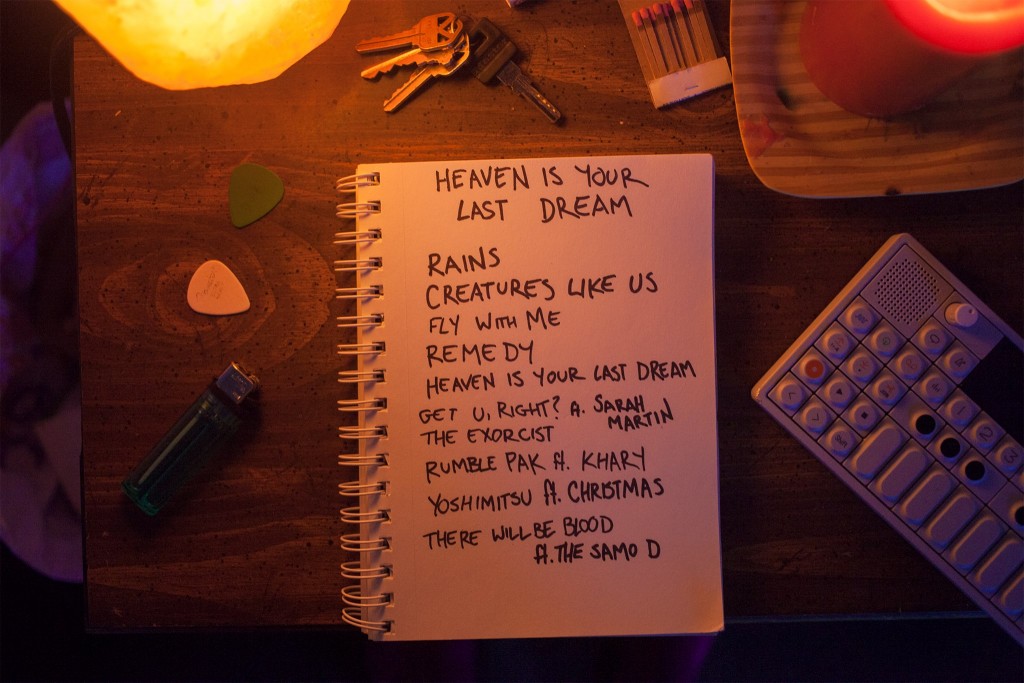 HEAVEN IS YOUR
LAST DREAM
RAINS
CREATURES LIKE US
FLY WITH ME
REMEDY
HEAVEN IS YOUR LAST DREAM
GET U, RIGHT? ft. SARAH
MARTIN
THE EXORCIST
RUMBLE PAK ft. KHARY
YOSHIMITSU ft. CHRISTMAS
THERE WILL BE BLOOD
ft. THE SAMO D